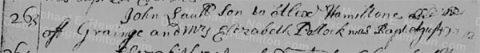 26 John Saull son to Alexr Hamiltone
off Grainge and Mrs Elizabeth Pollock was Bapt